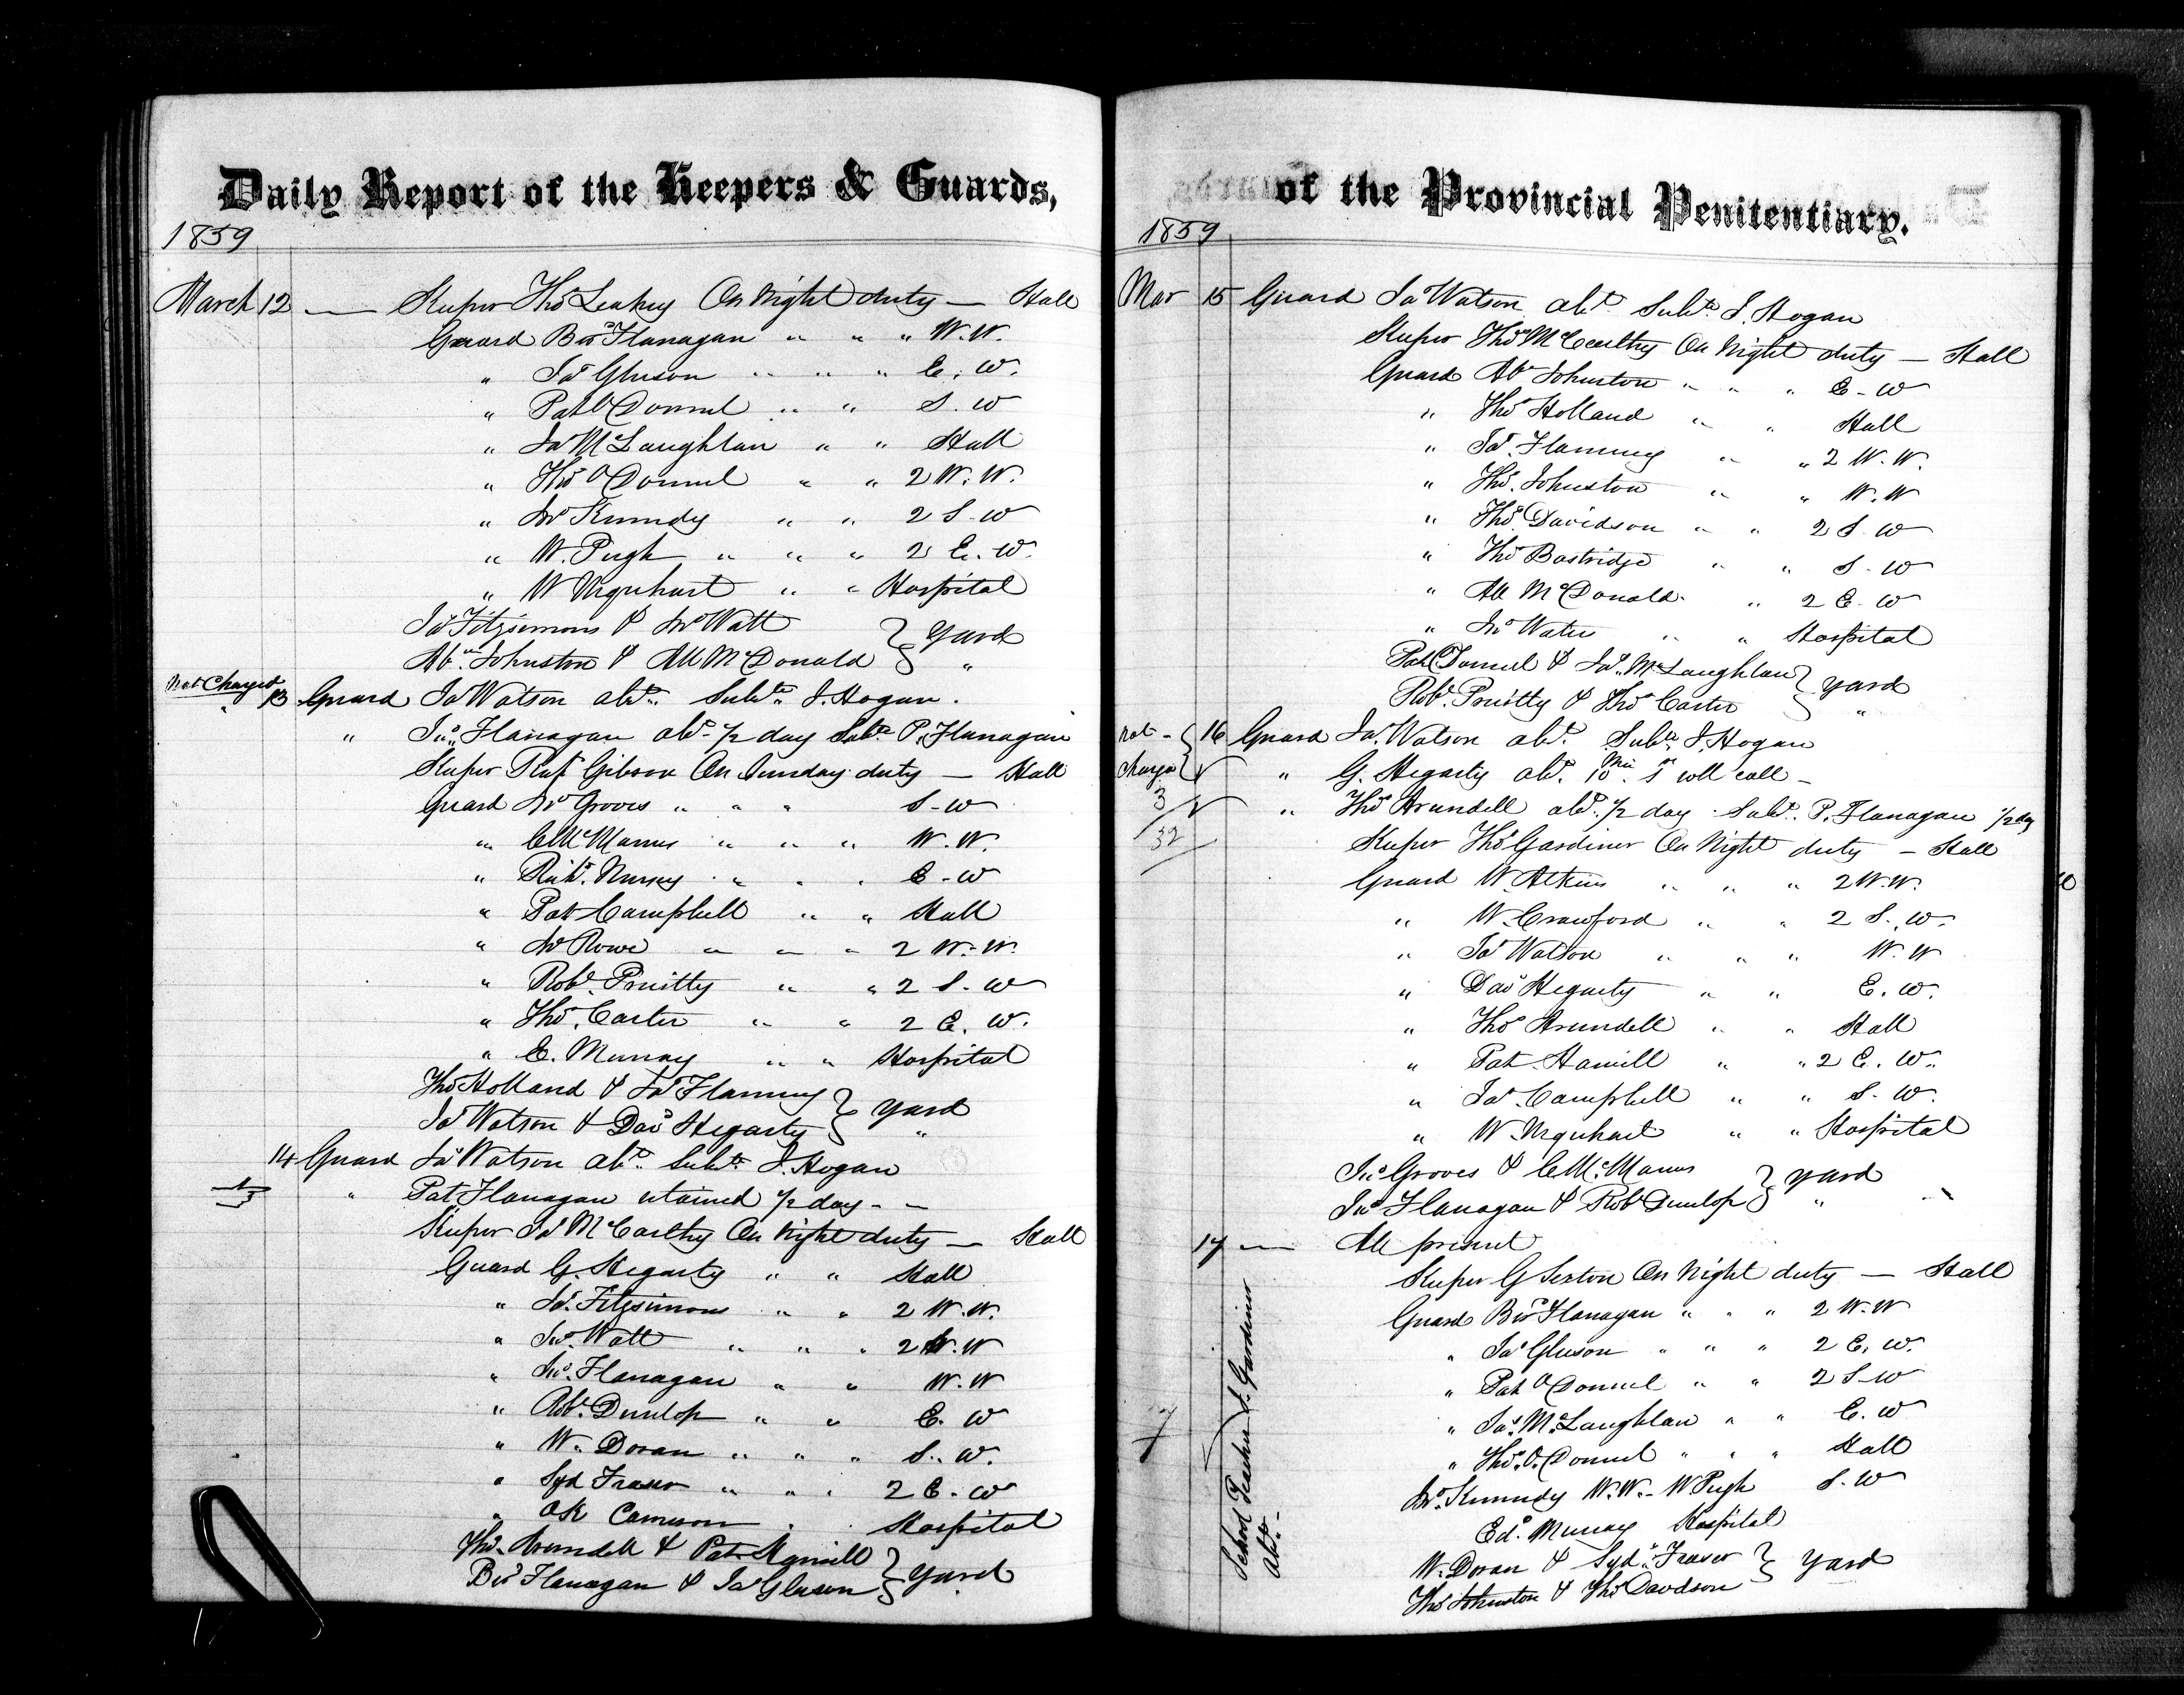 Daily Report of the Keepers & Guards,
1859
March 12 — Keeper Thos Leahey On Night duty — Hall
Guard Bar Flanagan " " " W. W.
" Jas Gleeson " " " E. W.
" Pat O Donnel " " S. W
" Jas McLaughlan " " Hall
" Thos O Donnel " " 2 W. W.
" Jno Kennedy " " 2 S. W
" W. Pugh " " " 2 E. W.
" W Urquhart " " Hospital
Jas Fitzsimons & Jno Watt } Yard
Abm Johnston & All McDonald } "
Not Charged
13 Guard Jas Watson abt. Subte J. Hogan.
" Jno Flanagan abt ½ day Subte P. Flanagan
Keeper Gibson On Sunday duty — Hall
Guard Jno Groves " " " S - W
" C McManus " " " W. W.
" Richd. Nursey " " " E - W
" Pat Campbell " " Hall
" Jno Rowe " " " 2 W. W.
" Robt. Pruitty " " 2 S. W
" Thos. Carter " " 2 E. W.
" E. Murray " " Hospital
Thos Holland & Jas Flanning } Yard
Jas Watson & Dad Hegarty } "
14 Guard Jas Watson abt. Subte J. Hogan
" Pat Flanagan retained ½ day - -
Keeper Jas McCarthy On Night duty — Hall
Guard G. Hegarty " " Hall
" Jas. Fitzsimons " " 2 W. W.
" Jno. Watt " " " 2 W. W
" Jno. Flanagan " " W. W
" Robt. Dunlop " " E. W
" W. Doran " " " S. W.
" Syd Fraser " " " 2 E. W
" Cameron " Hospital
Thos. Arundell & Pat Hamill } Yard
Bar Flanagan & Jas Gleeson }
of the Provincial Penitentiary.
1859
Mar 15 Guard Jas Watson abt. Subte J. Hogan
Keeper Thos McCarthy On Night duty — Hall
Guard Abm Johnston " " " E - W
" Thos Holland " " Hall
" Jas. Flanning " " 2 W. W.
" Thos. Johnston " " W. W
" Thos. Davidson " " 2 S. W
" Thos Bostridge " " S - W
" All McDonald " 2 E. W
" Jno Watts " " Hospital
Pat O Donnel & Jas. McLaughlan } Yard
Robt. Pruitty & Thos Carter } "
Not Charge { 16 Guard Jas. Watson abt. Subte J. Hogan
" G. Hegarty abt. 10 Min at roll call -
3/32 " Thos Arundell abt. ½ day - Subt. P. Flanagan ½ day
Keeper Thos Gardiner On Night duty — Hall
Guard W. Atkins " " " 2 W. W.
" W. Crawford " " 2 S. W.
" Jas Watson " " " W. W
" Dad Hegarty " " E. W.
" Thos Arundell " " Hall
" Pat Hamill " " 2 E. W.
" Jas. Campbell " " S. W.
" W. Urquhart " " Hospital
Jno Groves & C McManus } Yard
Jno Flanagan & Robt Dunlop } "
17 — All present
Keeper G Sexton On Night duty — Hall
Guard Bar Flanagan " " " 2 W. W
" Jas Gleeson " " " 2 E. W.
" Pat O Donnel " " 2 S W
" Jas. McLaughlan " " E. W
" Thos. O. Donnel " " " Hall
Jno. Kennedy W. W. - W Pugh S. W
Ed. Murray Hospital
W. Doran & Syd. Fraser } Yard
Thos Johnston & Thos Davdson }
School Teacher J. Gardiner
abt. -